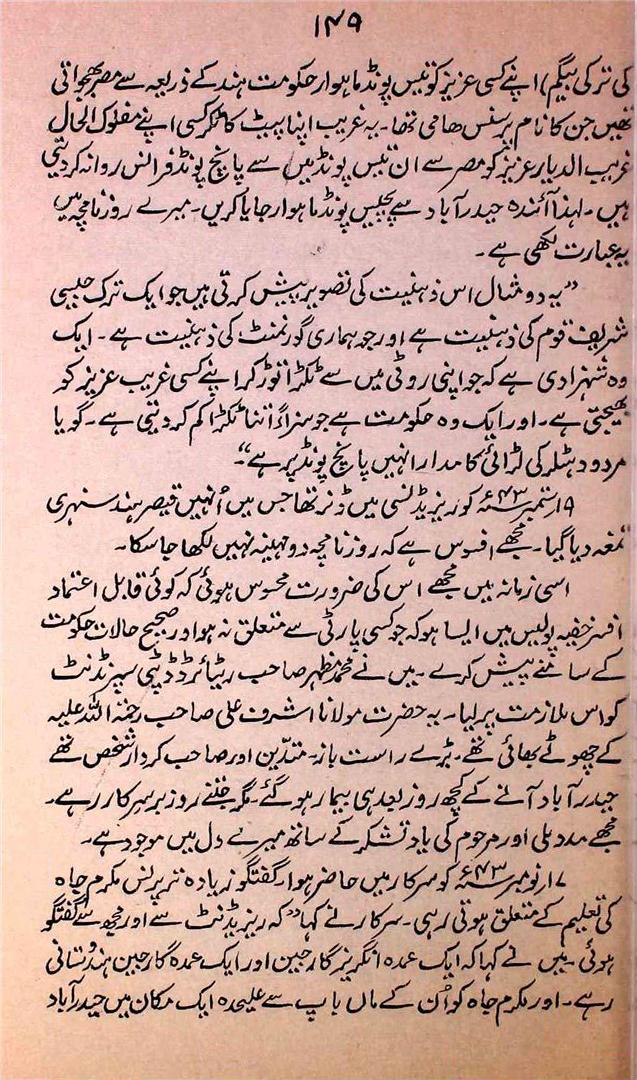 ۱۴۹
کی ترکی بیگم) اپنے کسی عزیز کو تیس پونڈ ماہوار حکومت ہند کے ذریعہ سے مصر بھجواتی
تھیں جن کا نام پرنس ھامی تھا۔ یہ غریب اپنا پیٹ کاٹ کر کسی اپنے مفلوک الحال
غریب الدیار عزیز کو مصر سے ان تیس پونڈ میں سے پانچ پونڈ فرانس روانہ کر دیتی
ہیں۔ لہذا آئندہ حیدرآباد سے پچیس پونڈ ماہوار جایا کریں۔ میرے روزنامچہ میں
یہ عبارت لکھی ہے۔
”یہ دو مثال اس ذہنیت کی تصویر پیش کرتی ہیں جو ایک ترک جیسی
شریف قوم کی ذہنیت ہے اور جو ہماری گورنمنٹ کی ذہنیت ہے۔ ایک
وہ شہزادی ہے کہ جو اپنی روٹی میں سے ٹکڑا توڑ کر اپنے کسی غریب عزیز کو
بھیجتی ہے۔ اور ایک وہ حکومت ہے جو سزاءً اتنا ٹکڑا کم کر دیتی ہے۔ گویا
مردود ہٹلر کی لڑائی کا مدار انہیں پانچ پونڈ پر ہے“۔
۱۹ ستمبر ۴۳ء؁ کو ریزیڈنسی میں ڈنر تھا جس میں اُنہیں قیصر ہند سنہری
تمغہ دیا گیا۔ مجھے افسوس ہے کہ روزنامچہ دو مہینہ نہیں لکھا جا سکا۔
اسی زمانہ میں مجھے اس کی ضرورت محسوس ہوئی کہ کوئی قابل اعتماد
افسر خفیہ پولیس میں ایسا ہو کہ جو کسی پارٹی سے متعلق نہ ہو اور صحیح حالات حکومت
کے سامنے پیش کرے۔ میں نے محمد مظہر صاحب ریٹائرڈ ڈپٹی سپرنڈنٹ
کو اس ملازمت پر لیا۔ یہ حضرت مولانا اشرف علی صاحب رحمۃ اللہ علیہ
کے چھوٹے بھائی تھے۔ بڑے راست باز، متدین اور صاحب کردار شخص تھے
حیدرآباد آنے کے کچھ روز بعد ہی بیمار ہو گئے۔ مگر جتنے روز برسر کار رہے۔
مجھے مدد ملی اور مرحوم کی یاد تشکر کے ساتھ میرے دل میں موجود ہے۔
۱۷ نومبر ۴۳ء؁ کو سرکار میں حاضر ہوا۔ گفتگو زیادہ تر پرنس مکرم جاہ
کی تعلیم کے متعلق ہوتی رہی۔ سرکار نے کہا ”کہ ریزیڈنٹ سے اور مجھ سے گفتگو
ہوئی۔ میں نے کہا کہ ایک عمدہ انگریز گارجین اور ایک عمدہ گارجین ہندُستانی
رہے۔ اور مکرم جاہ کو اُن کے ماں باپ سے علیحدہ ایک مکان میں حیدرآباد